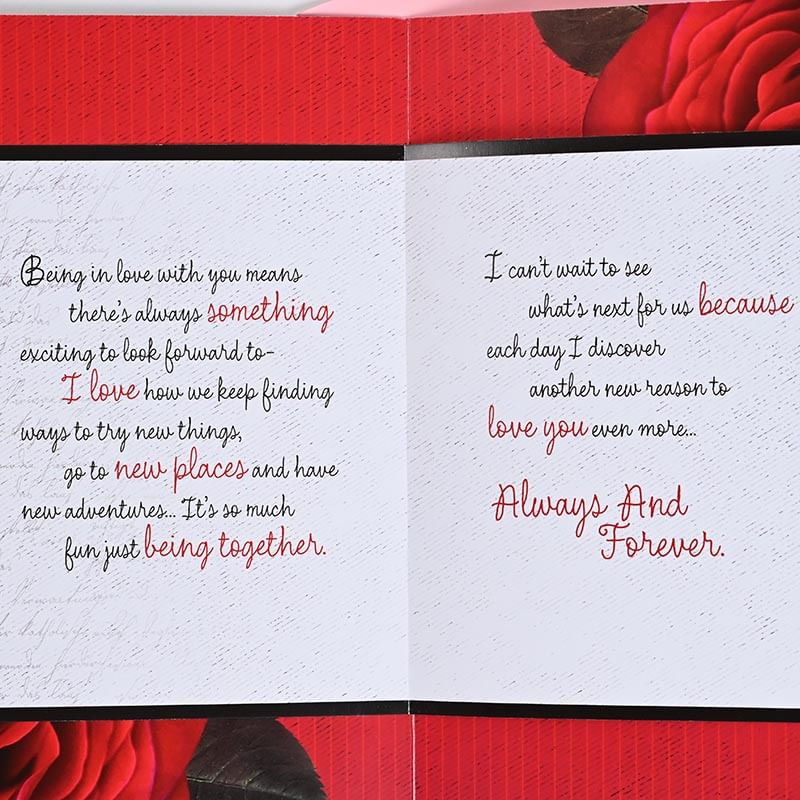 Being in love with you means
there's always something
exciting to look forward to-
I love how we keep finding
ways to try new things,
go to new places and have
new adventures... It's so much
fun just being together.
I can't wait to see
what's next for us because
each day I discover
another new reason to
love you even more...
Always And
Forever.